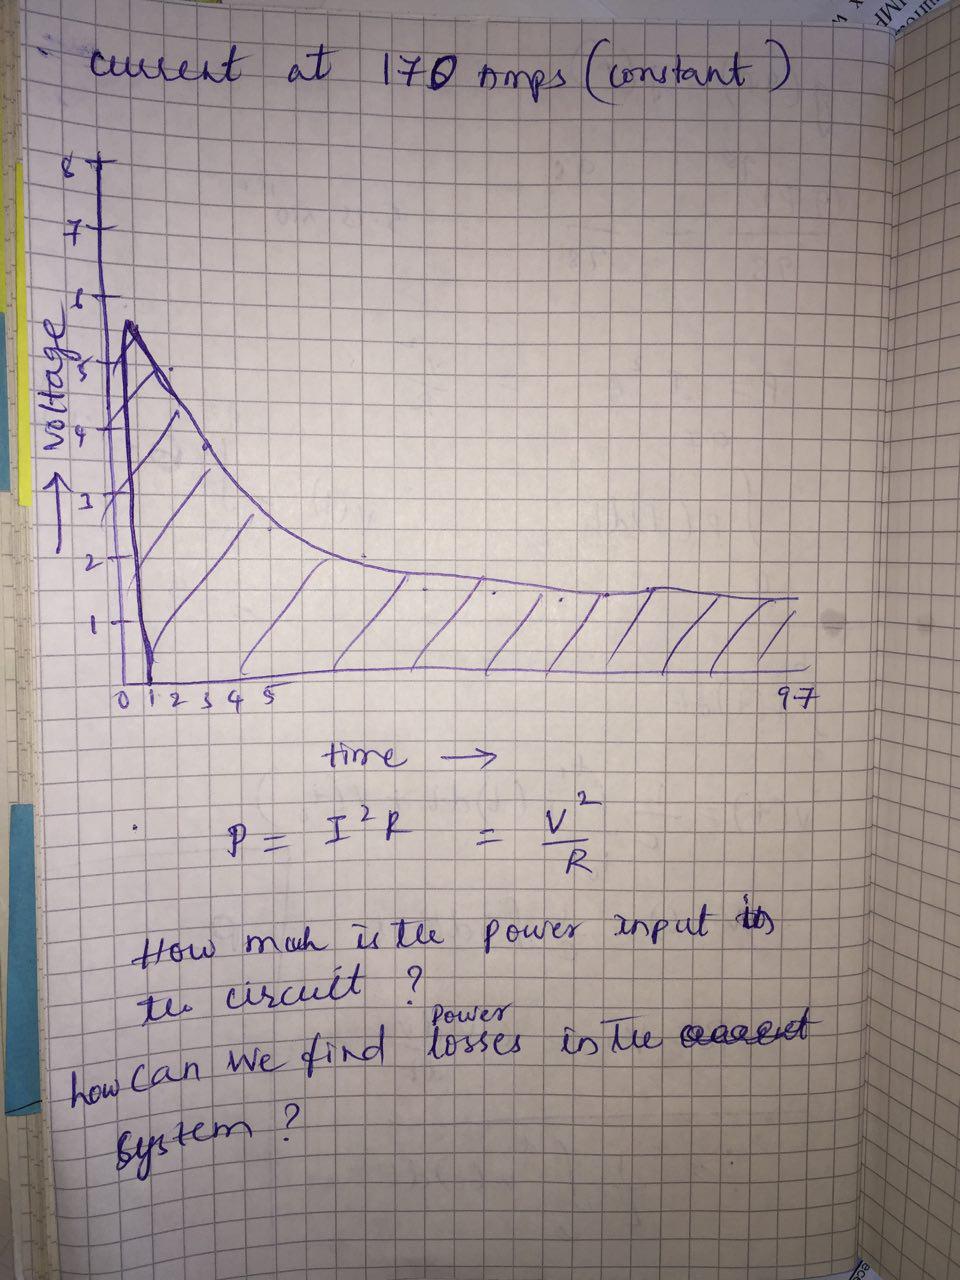 current at 170 Amps (constant)
8
7
6
5
4
3
2
1
→ voltage
0 1 2 3 4 5 97
time →
P = I²R = V²/R
How much is the power input in
the circuit ?
how can we find power losses in the
system ?